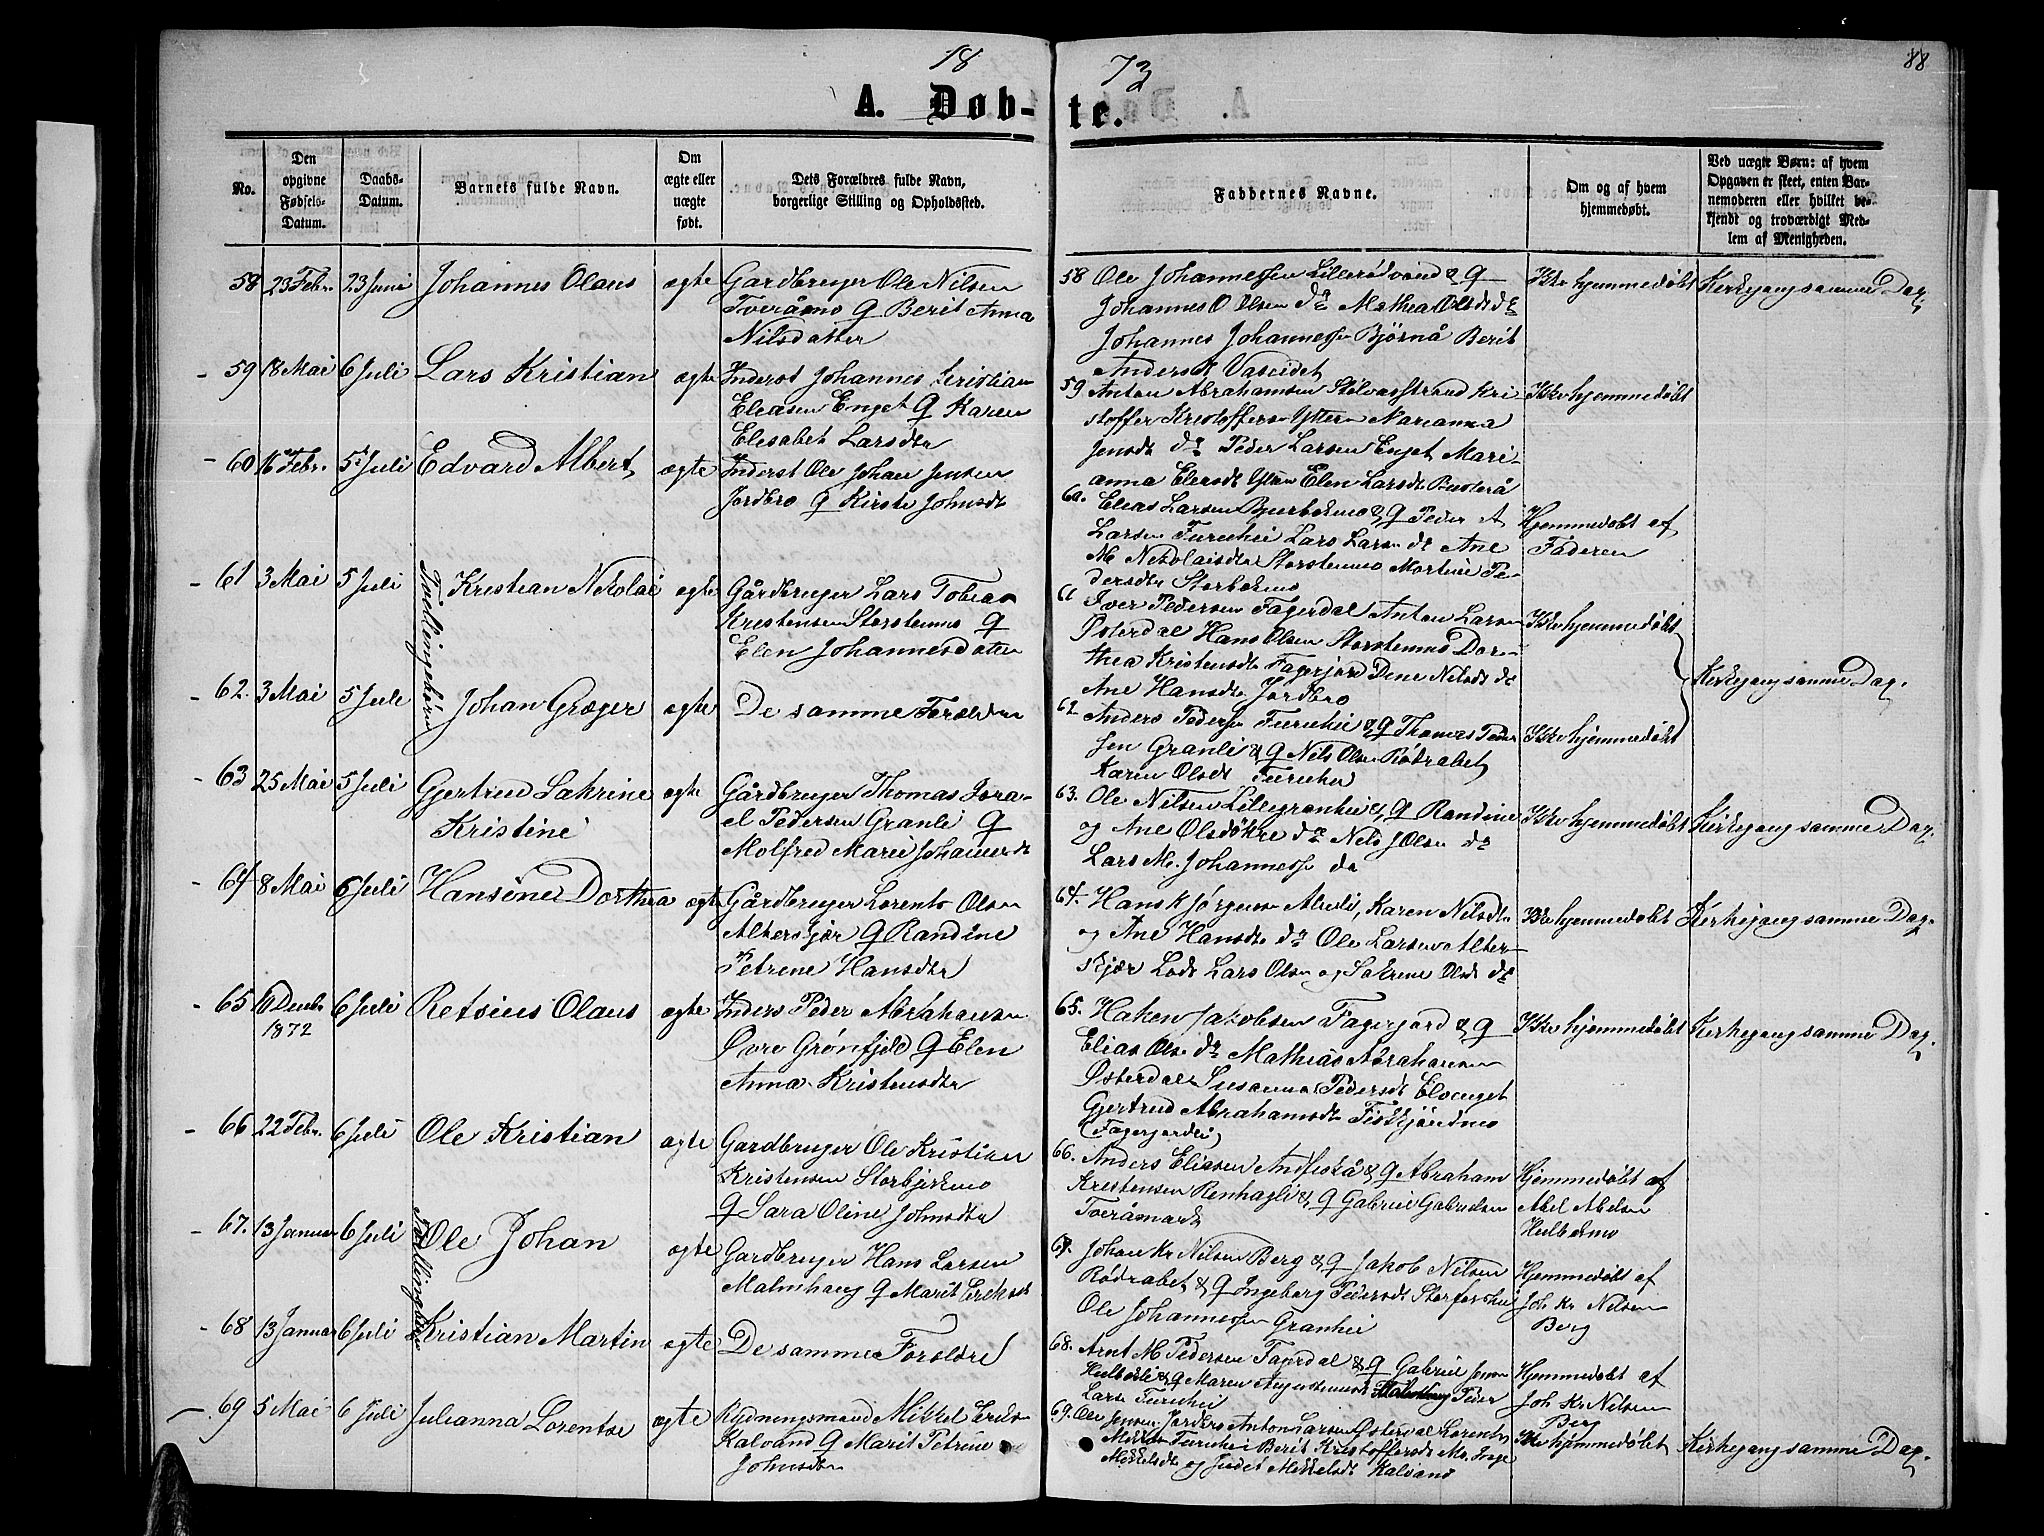 18 73
88
A. Døb- te.
No.
Den opgivne Fødsels-Datum.
Daabs-Datum.
Barnets fulde Navn.
Om ægte eller uægte født.
Dets Forældres fulde Navn, borgerlige Stilling og Opholdssted.
Faddernes Navne.
Om og af hvem hjemmedøbt.
Ved uægte Børn: af hvem Opgaven er skeet, enten Barnemoderen eller hvilket bekjendt og troværdigt Medlem af Menigheden.
58 23 Febr. 23 Juni Johannes Olaus ægte Gardbruger Ole Nilsen
Tveråmo & Berit Anna
Nilsdatter
58 Ole Johannessen Lillerødvand & q
Johannes O Olsen do Mathea Olsdt do
Johannes Johannessen Bjørnå Berit
Andersdt Vasvidet
Ikke hjemmedøbt Kirkegang samme Dag.
59 18 Mai 6 Juli Lars Kristian ægte Inderst Johannes Kristian
Eleasen Enget & Karen
Elesabet Larsdtr
59 Anton Abrahamsen Stølvasstrand Kri
stoffer Kristoffersen Yttern Marianna
Jensdt do Peder Larsen Enget Mari-
anna Elersdt Yttern Elen Larsdt
Ikke hjemmedøbt
60 16 Febr. 5 Juli Edvard Albert ægte Inderst Ole Johan Jensen
Jordbro & Kirste Johnsdt
60. Eleas Larsen Bjerkemo & q Peder A
Larsen Furuhei Lars Larsen do Ane
M Nikolaisdtr Storstenmo Martine Pe
dersdtr Storbekmo
Hjemmedøbt af
Faderen
61 3 Mai 5 Juli Tvillingebørn Kristian Nikolai ægte Gårdbruger Lars Tobias
Kristensen Storstenmo &
Elen Johannesdatter
61 Iver Pedersen Fagerdal Anton Larsen
Østerdal Hans Olsen Storstenmo Dor-
thea Kristensdt Fagerjord Dene Nilsdt do
Ane Hansdtr Jordbro
Ikke hjemmedøbt
Kirkegang samme Dag.
62. 3 Mai 5 Juli Johan Græger ægte De samme Forældre
62 Anders Pedersen Furuhei & q Thomas Peder
sen Granli & q Nils Olsen Rødrabet
Karen Olsdt Furuhei
Ikke hjemmedøbt
63 25 Mai 5 Juli Gjertrud Sakrine
Kristine ægte Gårdbruger Thomas Isra-
el Pedersen Granli &
Molfred Maren Johansdt
63. Ole Nilsen Lillegranhei & q Randine
og Ane Olsdøkre do Nils J Olsen do
Lars M. Johannessen do
Ikke hjemmedøbt Kirkegang samme Dag.
64 8 Mai 6 Juli Hansine Dorthea ægte Gårdbruger Lorents Olsen
Alterskjær & Randine
Petrine Hansdtr
64. Hans K Jørgensen Alteli, Karen Nilsdtr
og Ane Hansdtr do Ole Larsen Alter-
skjær Lods Lars Olsen og Sakrine Olsdt do
Ikke hjemmedøbt Kirkegang samme Dag.
65 10 Decbr.
1872 6 Juli Retsius Olaus ægte Inders Peder Abrahamsen
Øvre Grønfjeld & Elen
Anna Kristensdtr
65. Haken Jakobsen Fagerjord & q
Elias Olsen do Mathias Abrahamsen
Østerdal Susanna Pedersdt Elvenget
Gjertrud Abrahamsdtr Fisktjørnmo
(Fagerjordli)
Ikke hjemmedøbt Kirkegang samme Dag.
66 22 Febr. 6 Juli Ole Kristian ægte Gardbruger Ole Kristian
Kristensen Storbjerkmo
& Sara Oline Johnsdtr
66. Anders Eliasen Andfiskå & q Abraham
Kristensen Renhagli & q Gabriel Gabrielsen
Tveråmark
Hjemmedøbt af
Abel Abelsen
Hulbekmo
67. 13 Januar 6 Juli Tvillingebørn Ole Johan ægte Gardbruger Hans Larsen
Malmhaug & Marit Eriksdt
67. Johan Kr Nilsen Berg & q Jakob Nilsen
Rødrabet & q Ingeborg Pedersdt Storforshei
Ole Johannessen Granhei
Hjemmedøbt af
Joh Kr Nilsen
Berg
68 13 Januar 6 Juli Kristian Martin ægte De samme Forældre
68. Arnt M Pedersen Fagerdal & q Gabriel Jensen
& q Maren Peder
Larsen Furuhei
Hjemmedøbt af
Joh Kr Nilsen
Berg
69 5 Mai 6 Juli Julianna Lorentse ægte Rydningsmand Mikkel Eriksen
Kalvand & Marit Petrine
Johnsdtr
69. Ole Jensen Jordbro Anton Larsen Østerdal Lorents
Furuhei Berit Kristoffersdt Mo, Inge
Mikkelsdt og Judet Mikkelsdt Kalvand
Ikke hjemmedøbt Kirkegang samme Dag.